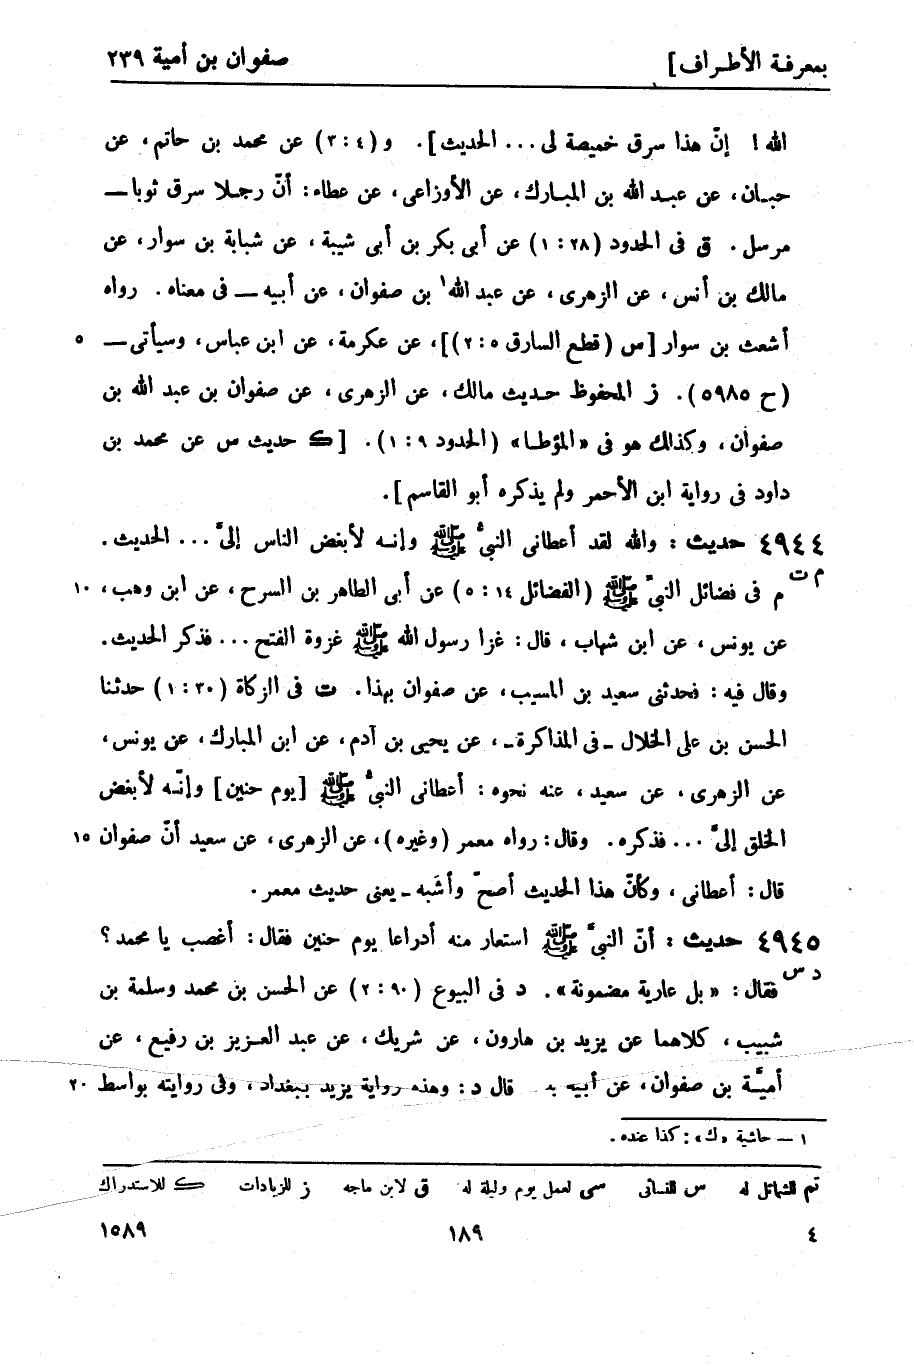 بمعرفة الأطراف] صفوان بن أمية ٢٣٩
الله! إنّ هذا سرق خميصة لى... الحديث]. و(٤ : ٣) عن محمد بن حاتم، عن
حبـان، عن عبـد الله بن المبـارك، عن الأوزاعى، عن عطاء: أنّ رجـلا سرق ثوبا ــ
مرسل. ق فى الحدود (٢٨ : ١) عن أبى بكر بن أبى شيبة، عن شبابة بن سوار، عن
مالك بن أنس، عن الزهرى، عن عبد الله١ بن صفوان، عن أبيه ــ فى معناه. رواه
أشعث بن سوار [س (قطع السارق ٥ : ٢)]، عن عكرمة، عن ابن عباس، وسيأتى ــ ٥
(ح ٥٩٨٥). ز المحفوظ حـديث مالك، عن الزهرى، عن صفوان بن عبد الله بن
صفوان، وكذالك هو فى «المؤطـا» (الحدود ٩ : ١). [ك حديث س عن محمد بن
داود فى رواية ابن الأحمر ولم يذكره أبو القاسم].
٤٩٤٤ حديث : والله لقد أعطانى النبىُّ ﷺ وإنـه لأبغض الناس إلىَّ... الحديث.
م ت م فى فضائل النبىّ ﷺ (الفضائل ١٤ : ٥) عن أبى الطاهر بن السرح، عن ابن وهب، ١٠
عن يونس، عن ابن شهاب، قال: غزا رسول الله ﷺ غزوة الفتح... فذكر الحديث.
وقال فيه: فحدثنى سعيد بن المسيب، عن صفوان بهذا. ت فى الزكاة (٣٠ : ١) حدثنا
الحسن بن على الخلال ـ فى المذاكرة ـ، عن يحيى بن آدم، عن ابن المبارك، عن يونس،
عن الزهرى، عن سعيد، عنه نحوه: أعطانى النبىُّ ﷺ [يوم حنين] وإنّـه لأبغض
الخلق إلىَّ ... فذكره. وقال: رواه معمر (وغيره)، عن الزهرى، عن سعيد أنّ صفوان ١٥
قال: أعطانى، وكأنّ هذا الحديث أصحّ وأشَبه ـ يعنى حديث معمر.
٤٩٤٥ حديث : أنّ النبىَّ ﷺ استعار منه أدراعا يوم حنين فقال: أغصب يا محمد؟
د س فقال: «بل عارية مضمونة». د فى البيوع (٩٠ : ٢) عن الحسن بن محمد وسلمة بن
شبيب، كلاهما عن يزيد بن هارون، عن شريك، عن عبد العـزيز بن رفيع، عن
أميَّـة بن صفوان، عن أبيه به. قال د: وهذه رواية يزيد ببغداد، وفى روايته بواسط ٢٠
١ ــ حاشية «ك»: كذا عنده.
تم للشمائل له س للنسائى سى لعمل يوم وليلة له ق لابن ماجه ز للزيادات ك للاستدراك
٤ ١٨٩ ١٥٨٩